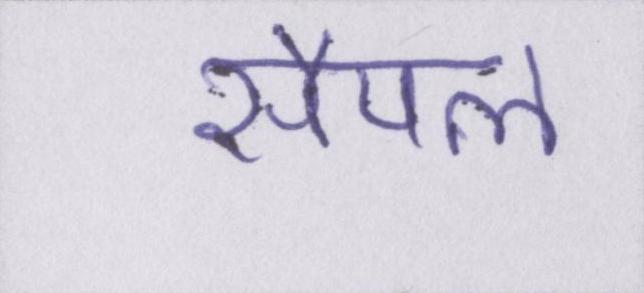 सैपल